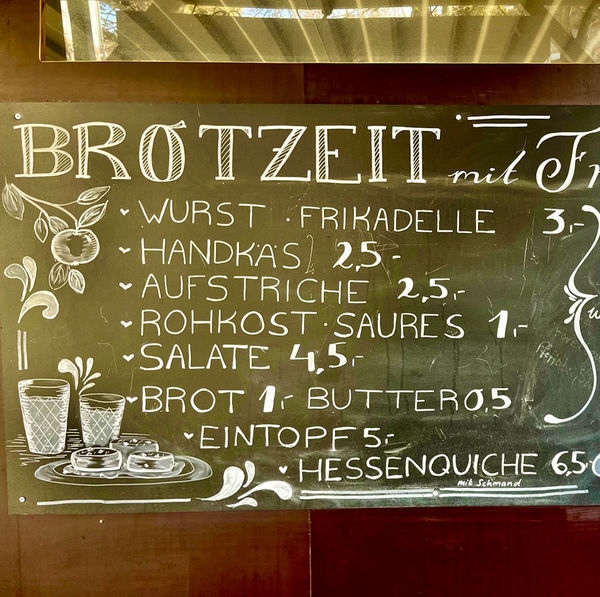 BROTZEIT mit Fr
WURST · FRIKADELLE 3,-
HANDKÄS 2,5-
AUFSTRICHE 2,5,-
ROHKOST · SAURES 1,-
SALATE 4,5,-
BROT 1,- BUTTER 0,5
EINTOPF 5,-
HESSENQUICHE 6,5-
mit Schmand